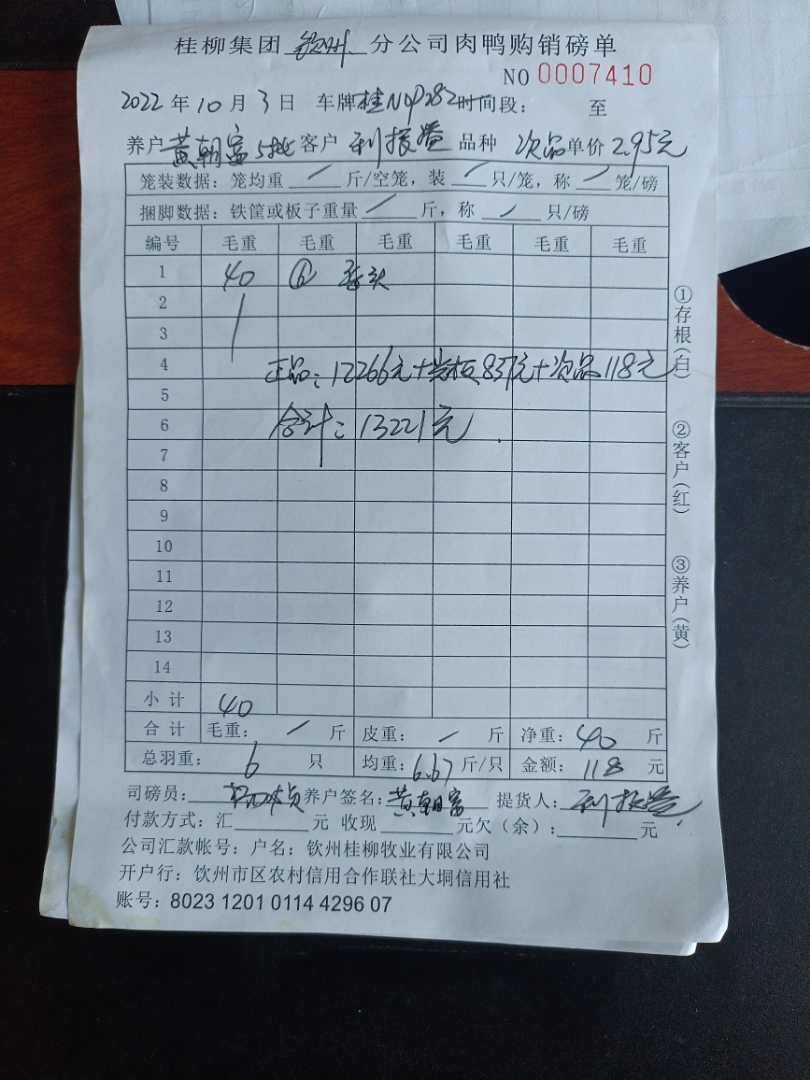 桂柳集团 钦州 分公司肉鸭购销磅单
NO 0007410
2022 年 10 月 3 日 车牌 桂N 282 时间段： 至
养户 黄朝富 5批 客户 利振 品种 次品 单价 2.95元
笼装数据：笼均重 / 斤/空笼，装 / 只/笼，称 / 笼/磅
捆脚数据：铁筐或板子重量 / 斤，称 / 只/磅
编号 毛重 毛重 毛重 毛重 毛重 毛重
1 40 ⑥
2
3
4 正品：12266元+ 837元+次品118元
5
6 合计：13221元
7
8
9
10
11
12
13
14
小计 40
合计 毛重： / 斤 皮重： / 斤 净重：40 斤
总羽重： 6 只 均重：6.67 斤/只 金额：118 元
司磅员： 养户签名：黄朝富 提货人：利振
付款方式：汇 元 收现 元欠（余）： 元
公司汇款帐号：户名：钦州桂柳牧业有限公司
开户行：钦州市区农村信用合作联社大垌信用社
账号：8023 1201 0114 4296 07
①存根(白)
②客户(红)
③养户(黄)